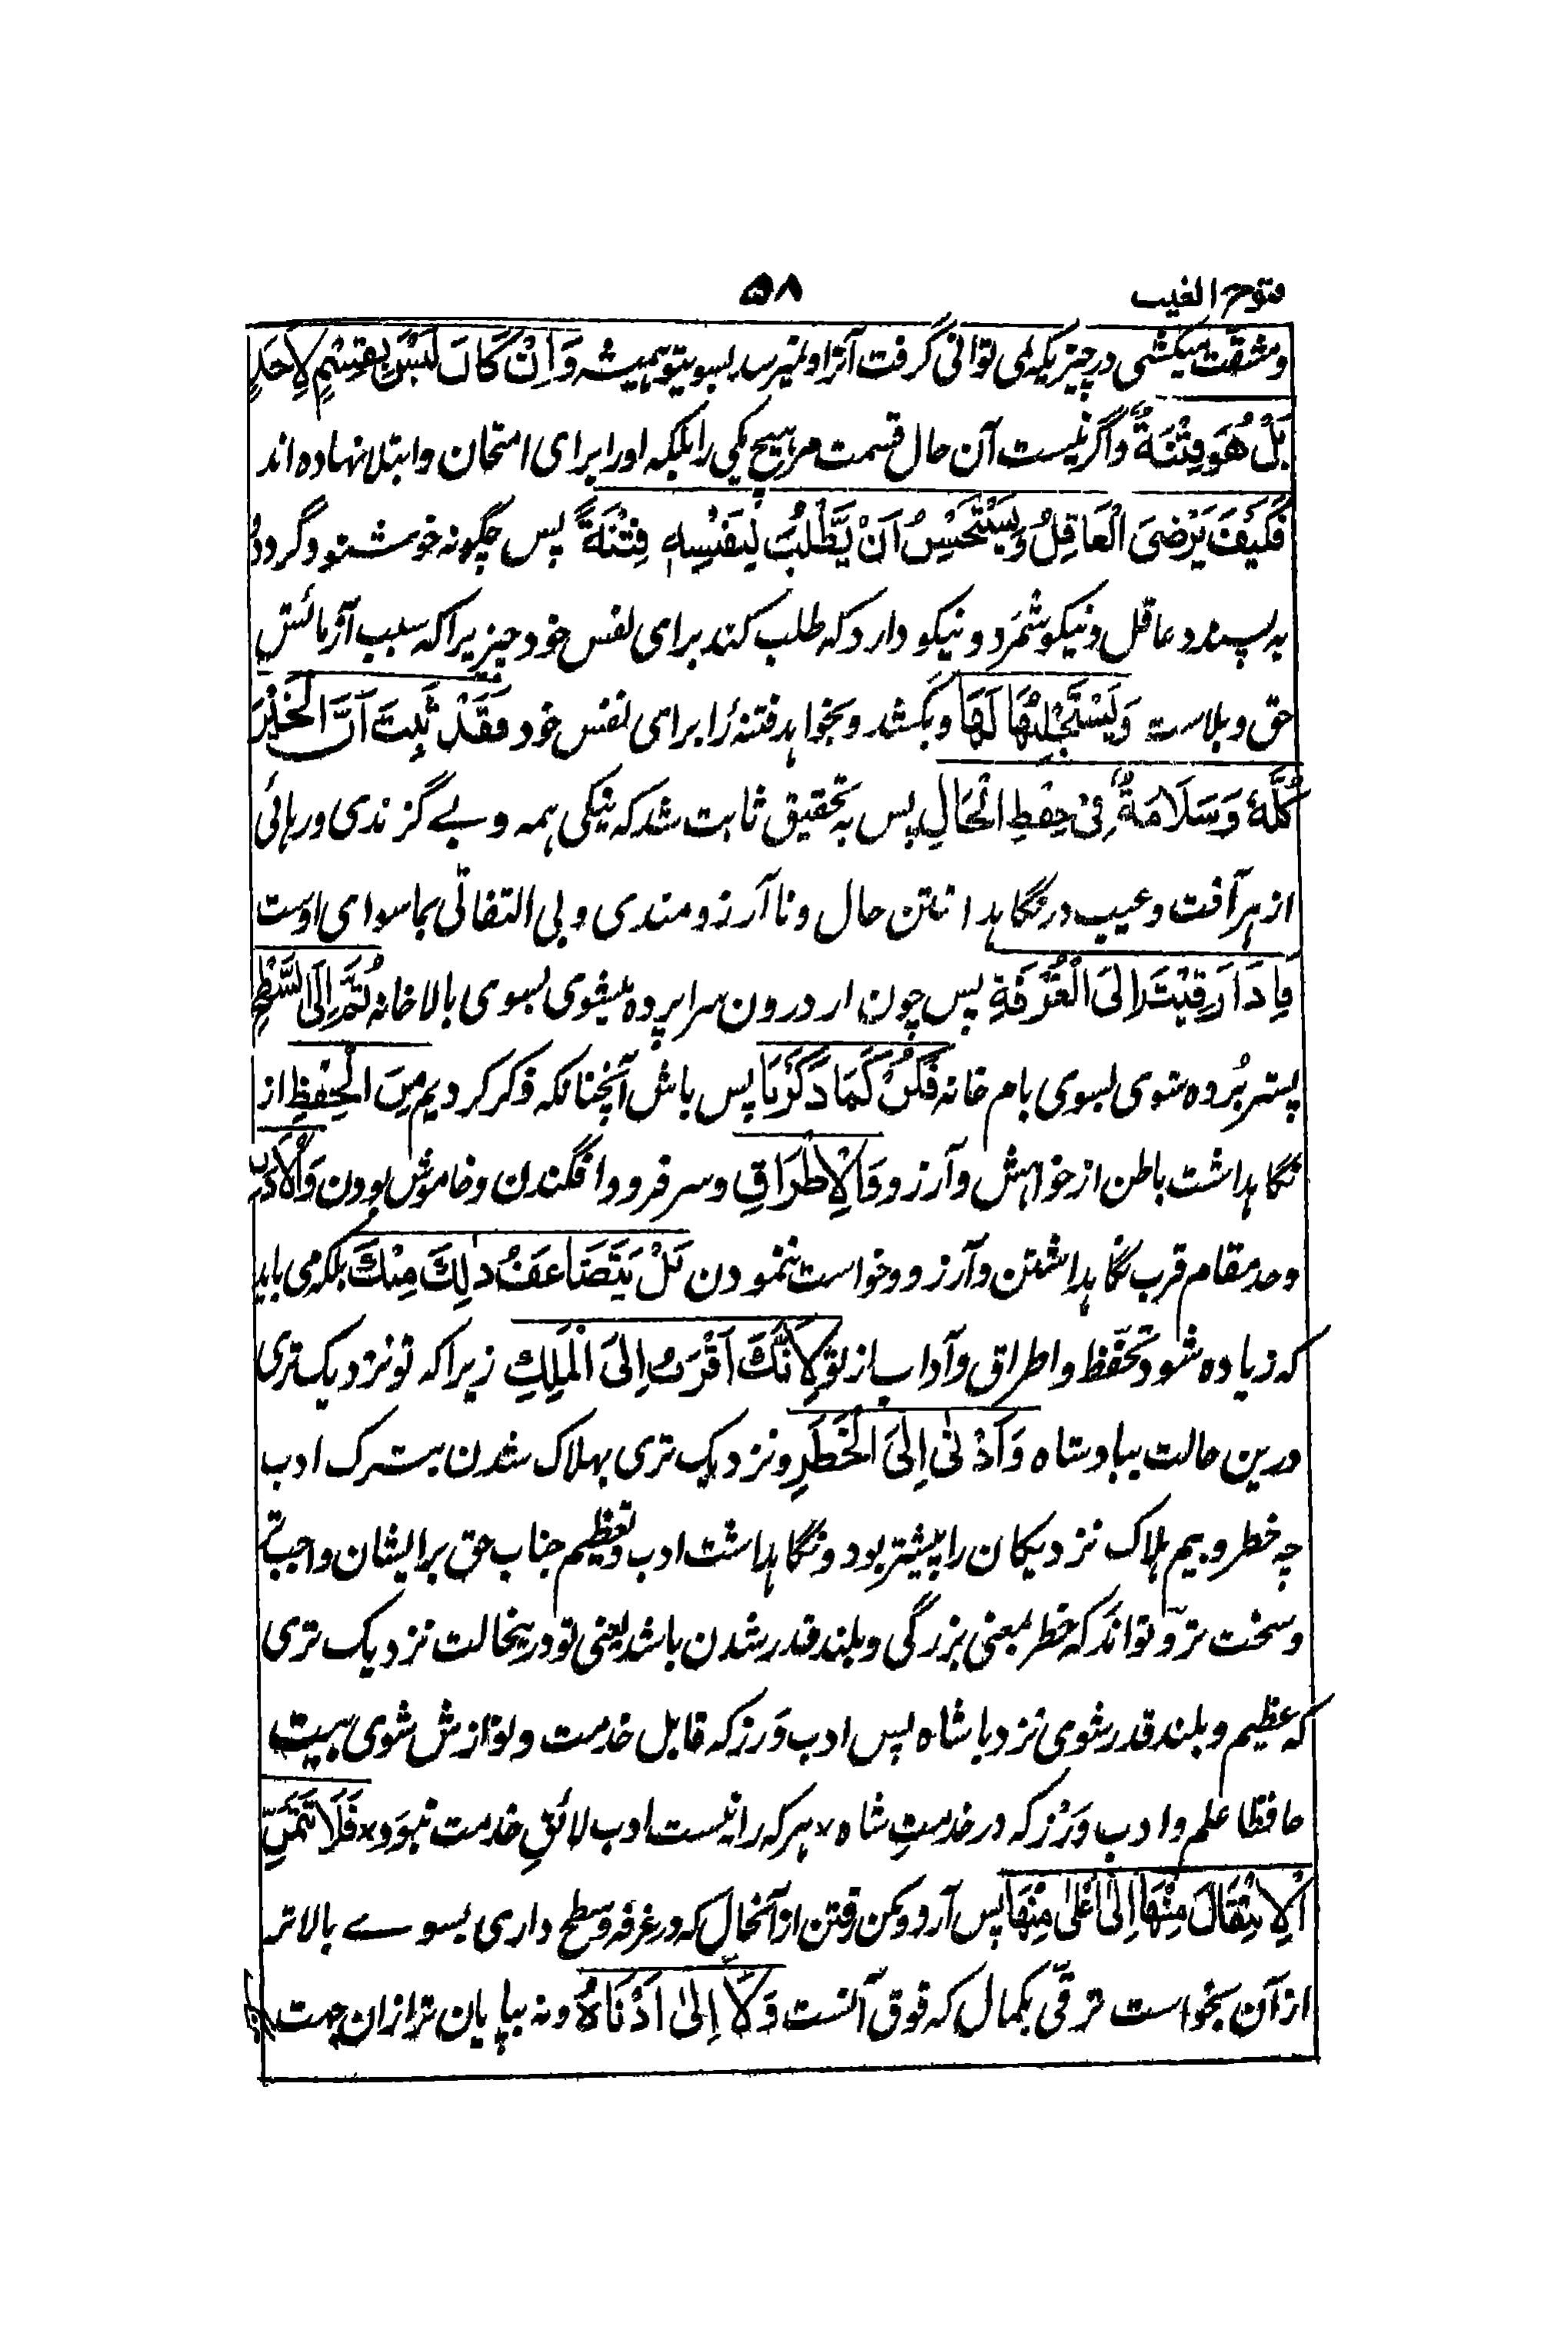 فتوح الغیب
۵۸
ومشقت میکشی در چیزیکه نمی توانی گرفت آنرا ونمیرسد بسوی تو همیشه وَاِنْ كَانَ لَيْسَ بِقِسْمٍ لِاَحَدٍ
بَلْ هُوَ فِتْنَةٌ واگر نیست آن حال قسمت مر هیچ یکی را بلکه اورا برای امتحان وابتلا نهاده اند
فَكَيْفَ يَرْضَى الْعَاقِلُ وَيَسْتَحْسِنُ اَنْ يَّطْلُبَ لِنَفْسِهٖ فِتْنَةً پس چگونه خوشنود گردد
به پسندد عاقل ونیکو شمرد ونیکو دارد که طلب کند برای نفس خود چیزیرا که سبب آزمائش
حق وبلاست وَيَسْتَجْلِبُهَا لَهَا وبکشد وبخواهد فتنه را برای نفس خود فَقَدْ ثَبَتَ اَنَّ الْخَيْرَ
كُلَّهٗ وَسَلَامَةٌ فِيْ حِفْظِ الْحَالِ پس به تحقیق ثابت شد که نیکی همه وبے گزندی ورهائی
از هر آفت وعیب در نگاهداشتن حال ونا آرزومندی وبی التفاتی بماسوای اوست
فَاِذَا رَقِيْتَ اِلَى الْغُرْفَةِ پس چون از درون سراپرده میشوی بسوی بالاخانه ثُمَّ اِلَى السَّطْحِ
پستر برده شوی بسوی بام خانه فَكُنْ كَمَا ذَكَرْنَا پس باش آنچنانکه ذکر کردیم مِنَ الْحِفْظِ از
نگاهداشت باطن از خواهش وآرزو وَالْاِطْرَاقِ وسر فرود افگندن وخاموش بودن وَالْاَدَبِ
وحد مقام قرب نگاهداشتن وآرزو وخواست ننمودن بَلْ يَتَضَاعَفُ ذٰلِكَ مِنْكَ بلکه می باید
که زیاده شود تحفّظ واطراق وآداب از تو لِاَنَّكَ اَقْرَبُ اِلَى الْمَلِكِ زیرا که تو نزدیک تری
درین حالت بپادشاه وَاَدْنٰى اِلَى الْخَطَرِ ونزدیک تری بهلاک شدن بترک ادب
چه خطر وبیم هلاک نزدیکان را بیشتر بود ونگاهداشت ادب وتعظیم جناب حق برایشان واجب تر
وسخت تر وتواند که خطر بمعنی بزرگی وبلند قدر شدن باشد یعنی تو درینحالت نزدیک تری
که عظیم وبلند قدر شوی نزد باشاه پس ادب وَرز که قابل خدمت ونوازش شوی بیت
حافظا علم وادب وَرْز که در خدمتِ شاه × هر که را نیست ادب لائقِ خدمت نبوَد × فَلَا تَمَنَّ
الْاِنْتِقَالَ مِنْهَا اِلٰى اَعْلٰى مِنْهَا پس آرزو مکن رفتن از آنحال که در غرفه وسطح داری بسوے بالاتر
از آن بخواست ترقّی بکمال که فوق آنست وَلَا اِلٰى اَدْنَاهُ ونه بپایان تر ازان جهت